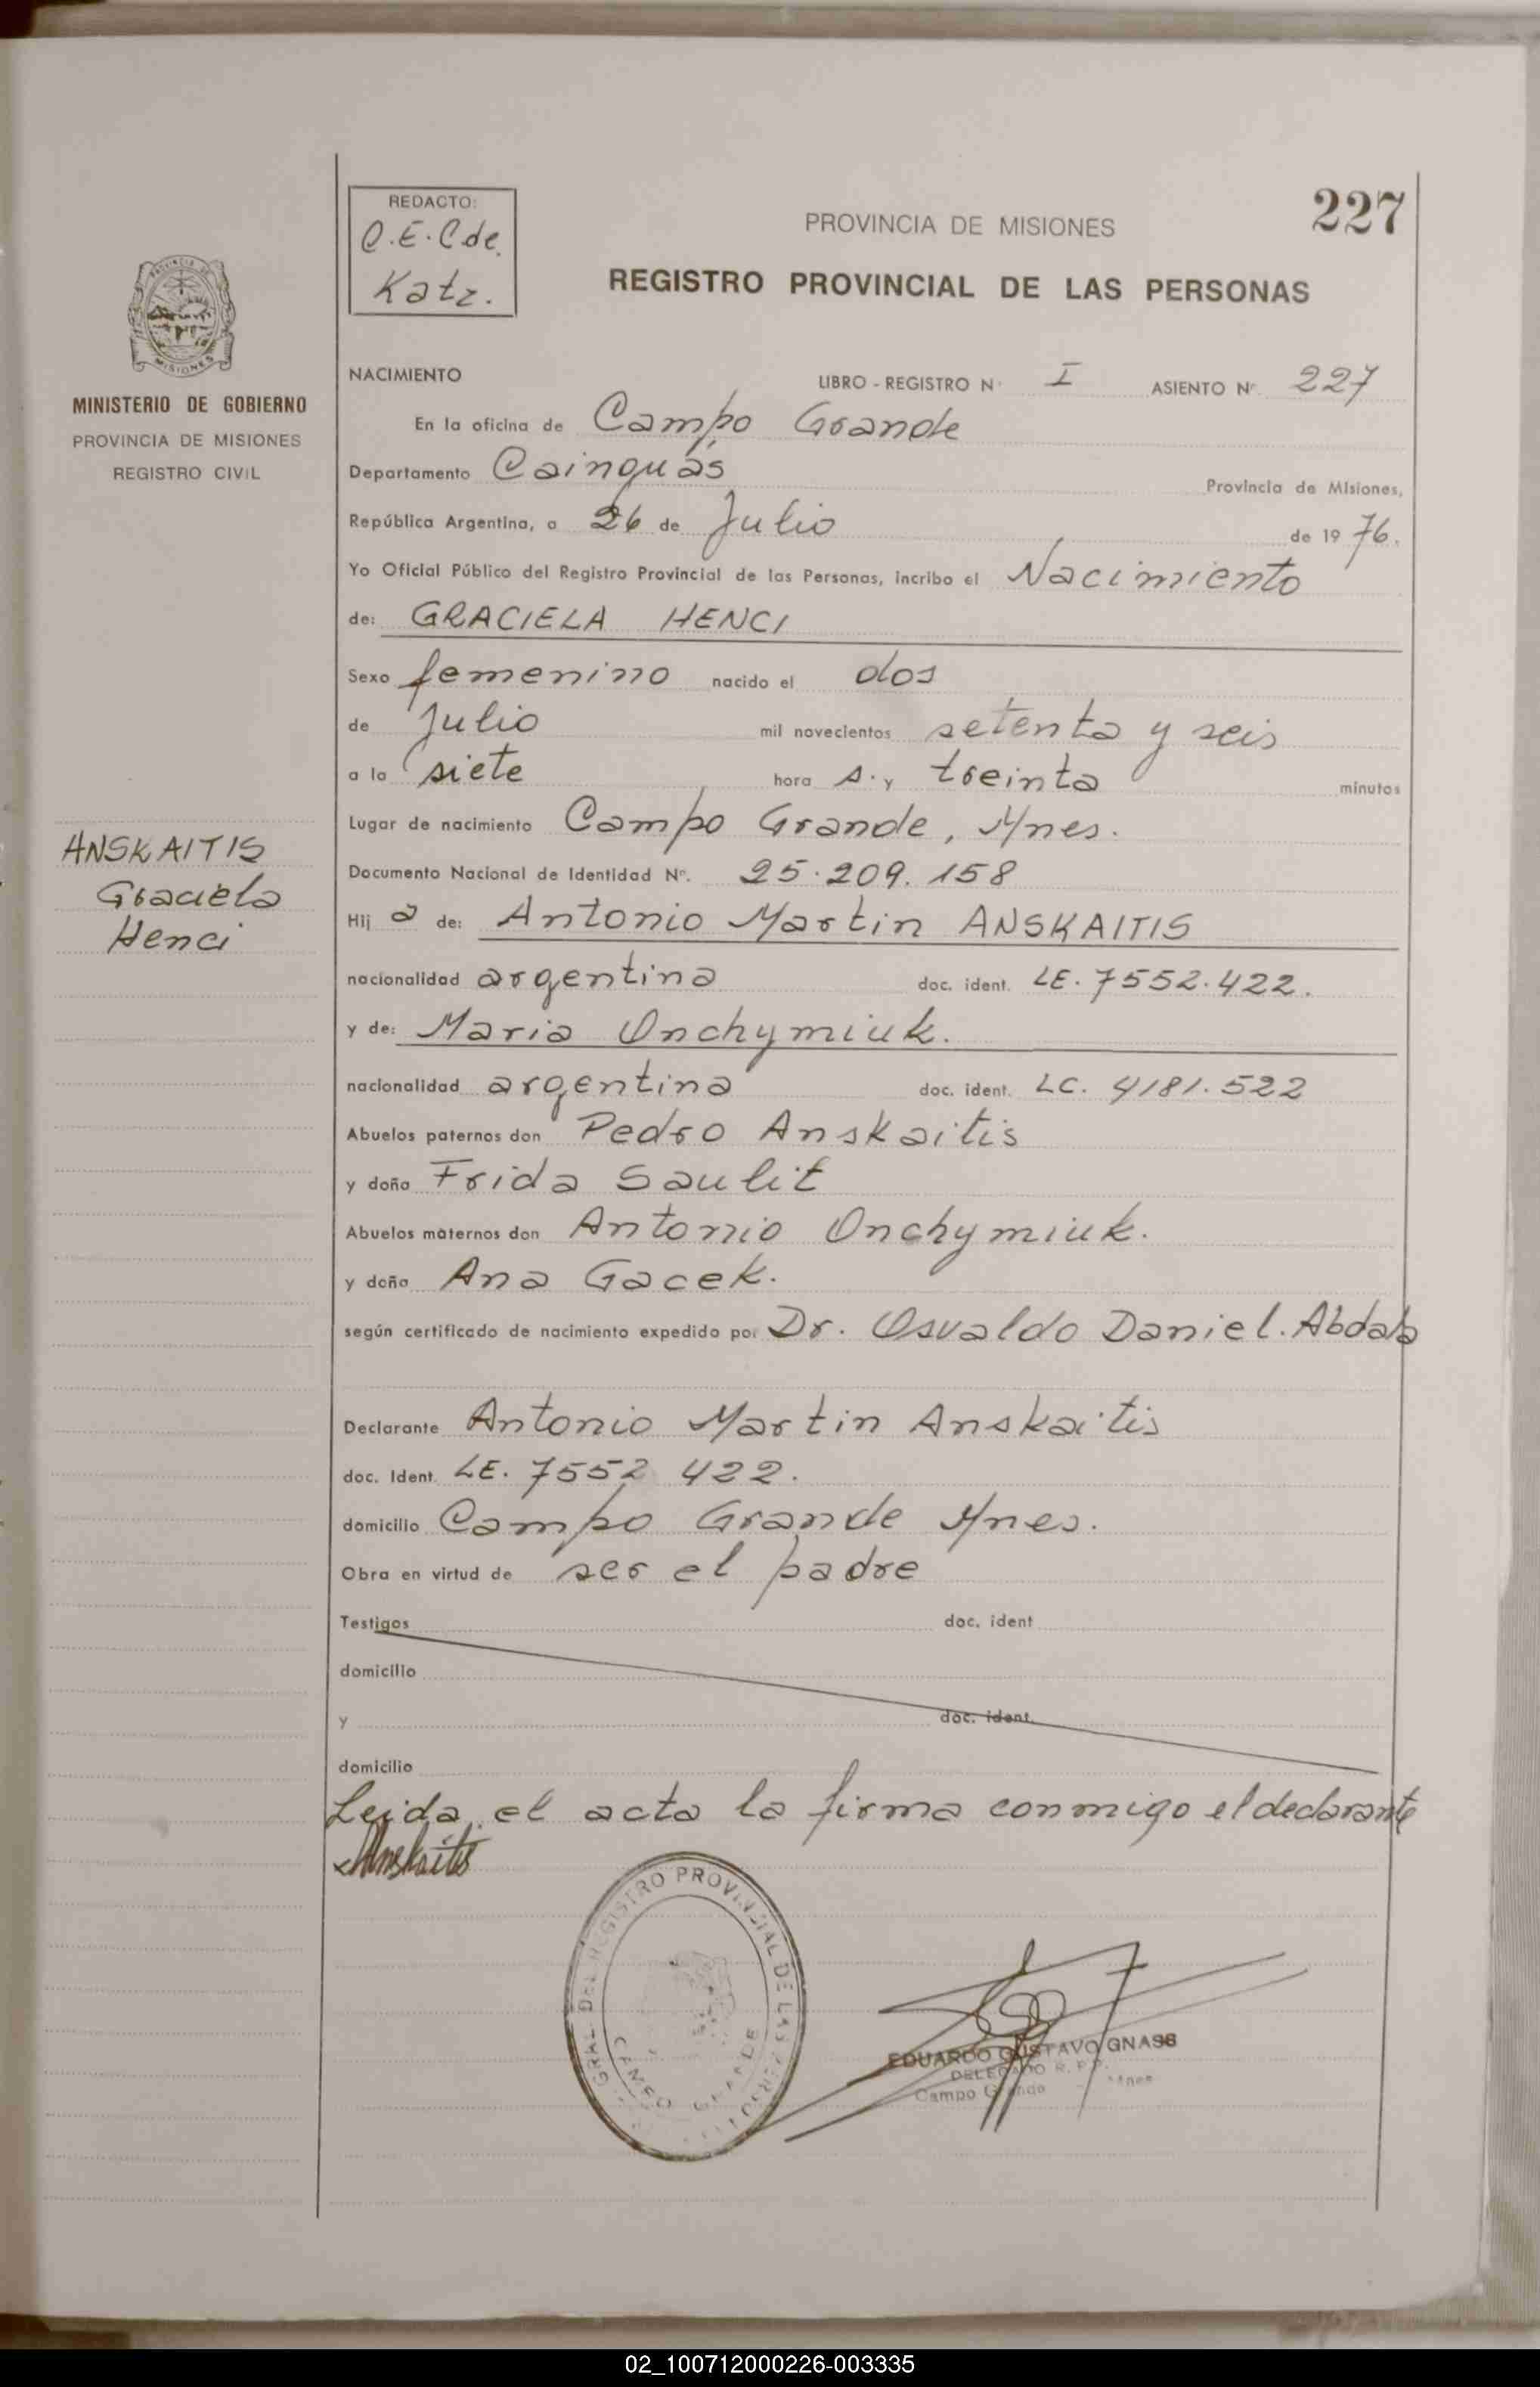 REDACTO:
C.E.C de.
Katz.
PROVINCIA DE MISIONES
227
REGISTRO PROVINCIAL DE LAS PERSONAS
MINISTERIO DE GOBIERNO
PROVINCIA DE MISIONES
REGISTRO CIVIL
NACIMIENTO LIBRO - REGISTRO Nº I ASIENTO Nº 227
En la oficina de Campo Grande
Departamento Cainguás Provincia de Misiones,
República Argentina, a 26 de Julio de 1976.
Yo Oficial Público del Registro Provincial de las Personas, incribo el Nacimiento
de: GRACIELA HENCI
Sexo femenino nacido el dos
de Julio mil novecientos setenta y seis
a la siete hora s. y treinta minutos
Lugar de nacimiento Campo Grande, Mnes.
Documento Nacional de Identidad Nº. 25.209.158
Hij a de: Antonio Martin ANSKAITIS
nacionalidad argentina doc. ident. LE. 7552.422.
y de: Maria Onchymiuk.
nacionalidad argentina doc. ident. LC. 4181.522
Abuelos paternos don Pedro Anskaitis
y doña Frida Saulit
Abuelos maternos don Antonio Onchymiuk.
y doña Ana Gacek.
según certificado de nacimiento expedido por Dr. Osvaldo Daniel. Abdala
Declarante Antonio Martin Anskaitis
doc. Ident. LE. 7552 422.
domicilio Campo Grande Mnes.
Obra en virtud de ser el padre
Testigos doc. ident
domicilio
y doc. ident.
domicilio
Leida el acta la firma conmigo el declarante
Anskaitis
ANSKAITIS
Graciela
Henci
GRAL. DEL REGISTRO PROVINCIAL DE LAS PERSONAS
CAMPO GRANDE
MISIONES
EDUARDO GUSTAVO GNASS
DELEGADO R. P. P.
Campo Grande - Mnes
02_100712000226-003335